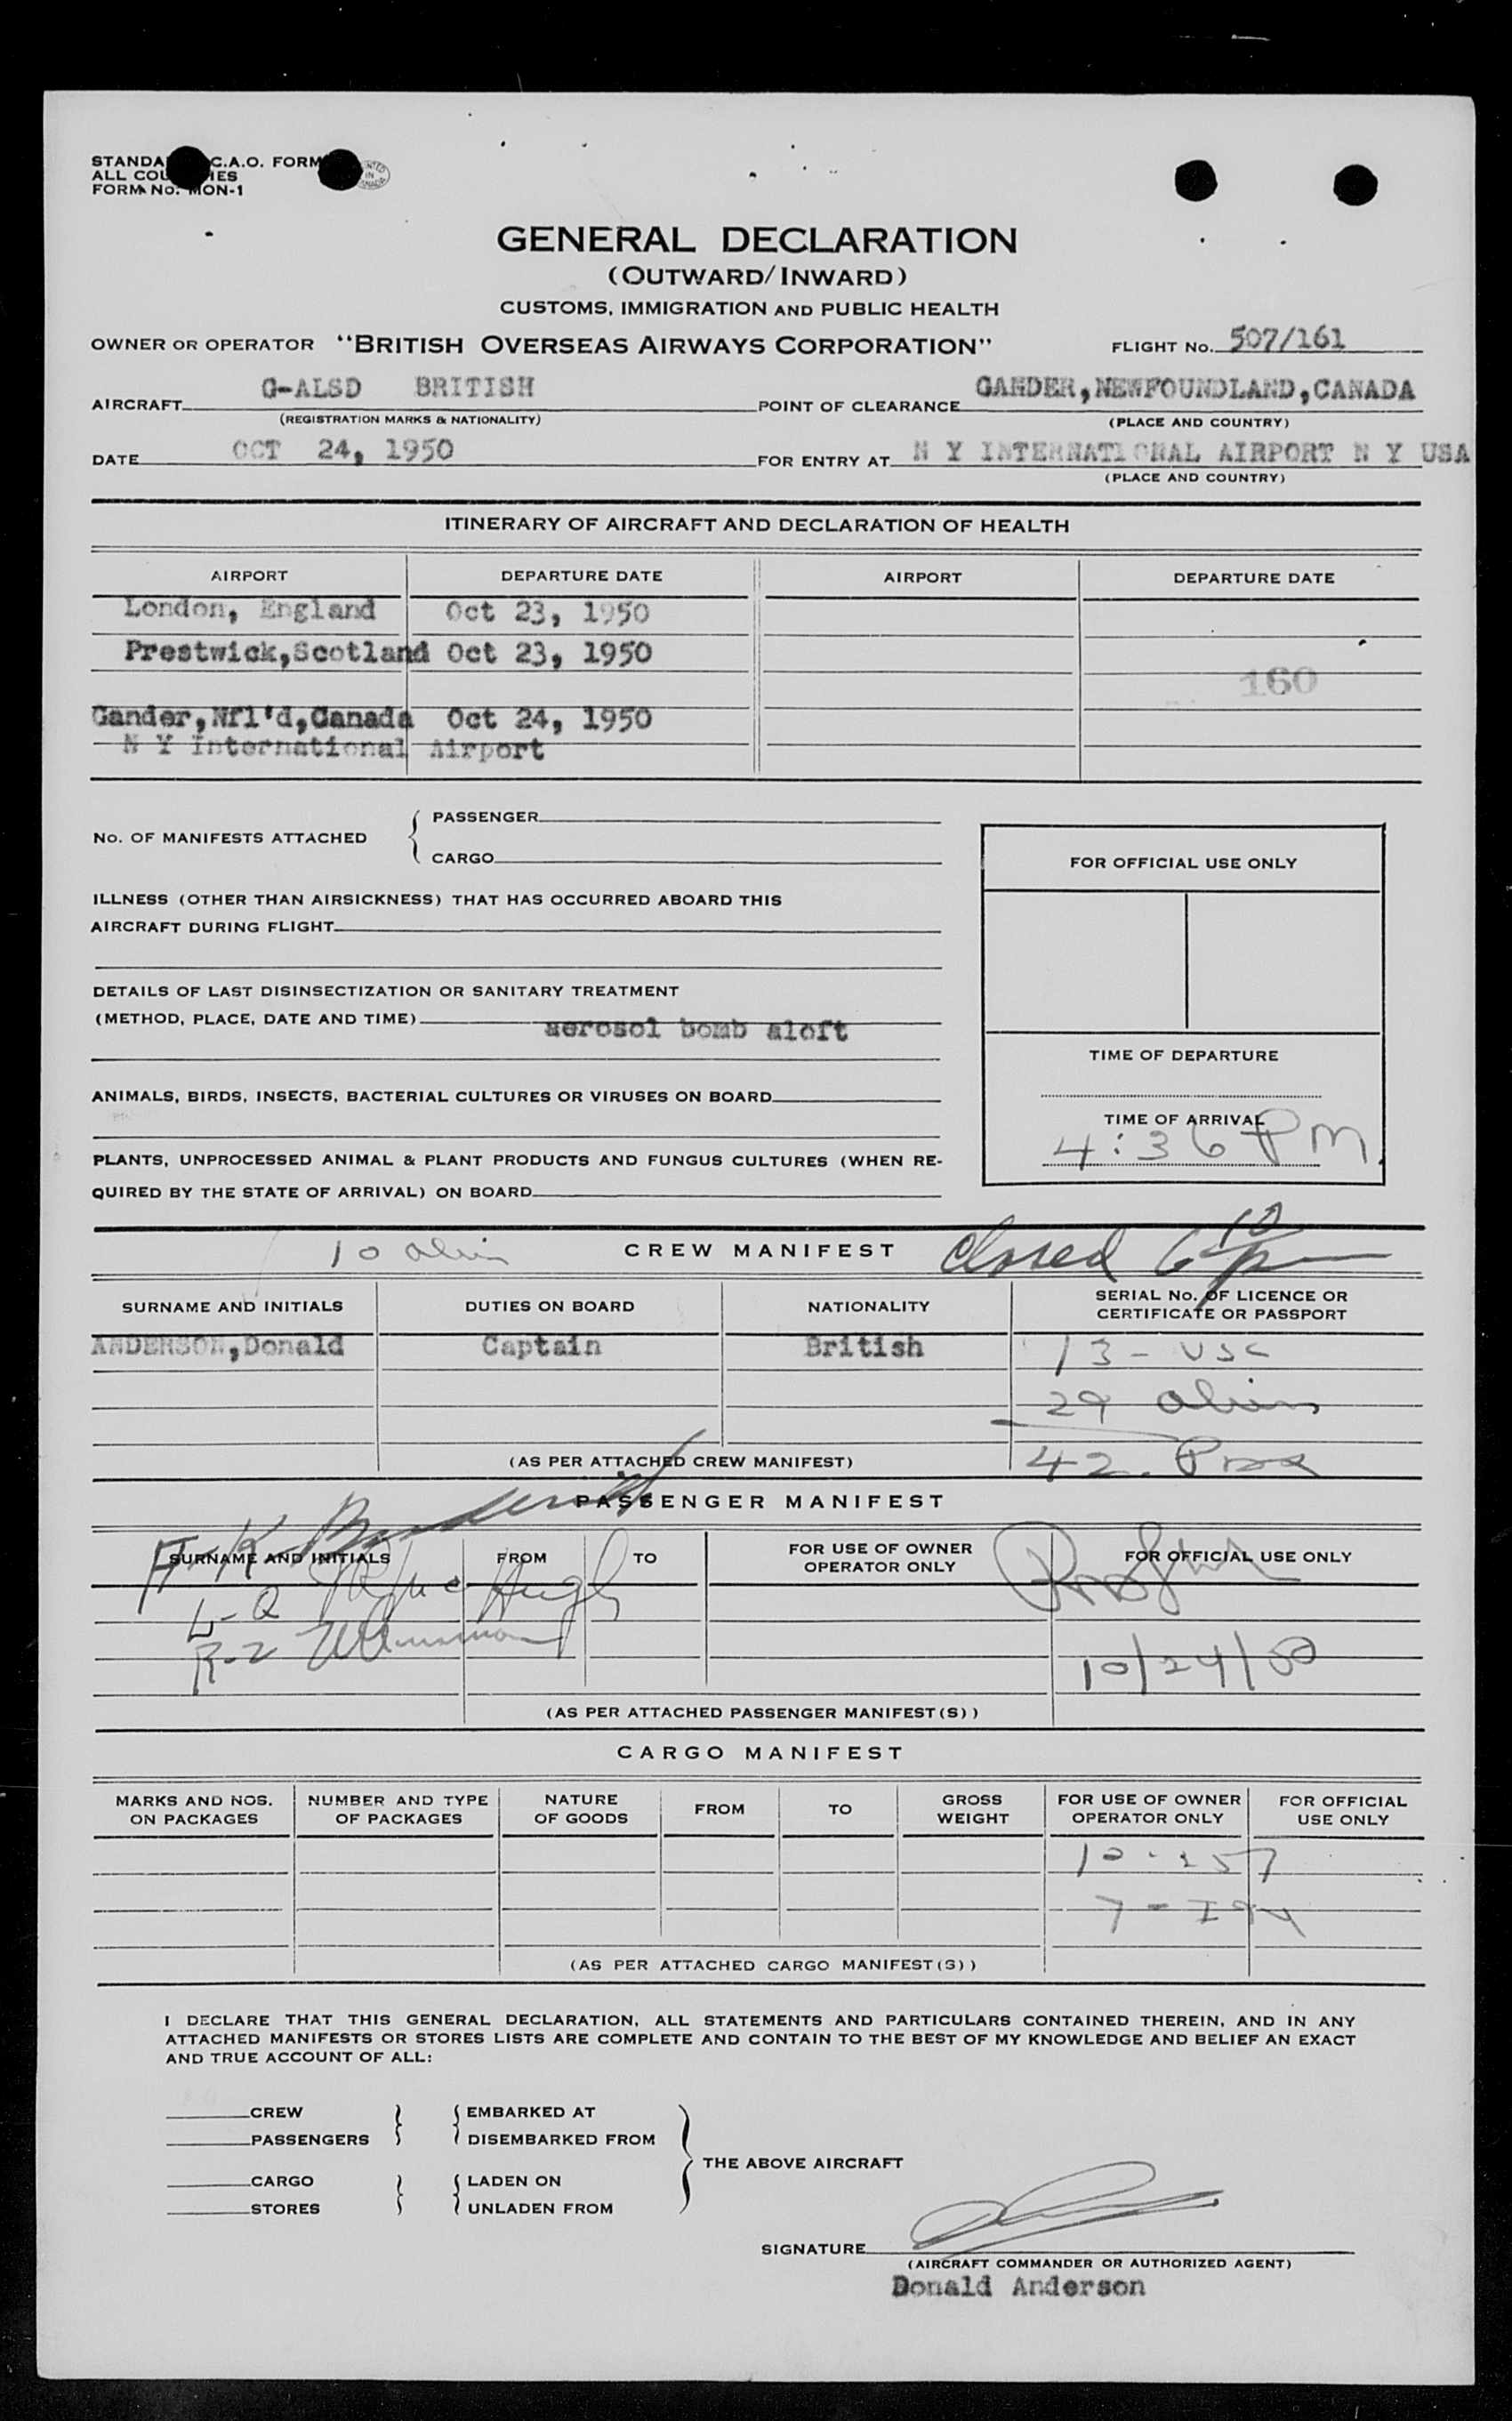 STANDA C.A.O. FORM
ALL COU IES
FORM No. MON-1
GENERAL DECLARATION
(OUTWARD/INWARD)
CUSTOMS, IMMIGRATION AND PUBLIC HEALTH
OWNER OR OPERATOR "BRITISH OVERSEAS AIRWAYS CORPORATION" FLIGHT No. 507/161
AIRCRAFT G-ALSD BRITISH POINT OF CLEARANCE GANDER,NEWFOUNDLAND,CANADA
(REGISTRATION MARKS & NATIONALITY) (PLACE AND COUNTRY)
DATE OCT 24, 1950 FOR ENTRY AT N Y INTERNATIONAL AIRPORT N Y USA
(PLACE AND COUNTRY)
ITINERARY OF AIRCRAFT AND DECLARATION OF HEALTH
AIRPORT DEPARTURE DATE AIRPORT DEPARTURE DATE
London, England Oct 23, 1950
Prestwick,Scotland Oct 23, 1950
160
Gander,Nfl'd,Canada Oct 24, 1950
N Y International Airport
No. OF MANIFESTS ATTACHED { PASSENGER
CARGO
FOR OFFICIAL USE ONLY
ILLNESS (OTHER THAN AIRSICKNESS) THAT HAS OCCURRED ABOARD THIS
AIRCRAFT DURING FLIGHT
DETAILS OF LAST DISINSECTIZATION OR SANITARY TREATMENT
(METHOD, PLACE, DATE AND TIME) aerosol bomb aloft
TIME OF DEPARTURE
ANIMALS, BIRDS, INSECTS, BACTERIAL CULTURES OR VIRUSES ON BOARD
TIME OF ARRIVAL
4:36 PM.
PLANTS, UNPROCESSED ANIMAL & PLANT PRODUCTS AND FUNGUS CULTURES (WHEN RE-
QUIRED BY THE STATE OF ARRIVAL) ON BOARD
10 alien CREW MANIFEST Closed 6 10 p
SURNAME AND INITIALS DUTIES ON BOARD NATIONALITY SERIAL No. OF LICENCE OR
CERTIFICATE OR PASSPORT
ANDERSON,Donald Captain British 13 - USC
29 aliens
(AS PER ATTACHED CREW MANIFEST) 42
PASSENGER MANIFEST
SURNAME AND INITIALS FROM TO FOR USE OF OWNER
OPERATOR ONLY FOR OFFICIAL USE ONLY
10/24/50
(AS PER ATTACHED PASSENGER MANIFEST(S))
CARGO MANIFEST
MARKS AND NOS.
ON PACKAGES NUMBER AND TYPE
OF PACKAGES NATURE
OF GOODS FROM TO GROSS
WEIGHT FOR USE OF OWNER
OPERATOR ONLY FOR OFFICIAL
USE ONLY
10-257
(AS PER ATTACHED CARGO MANIFEST(S))
I DECLARE THAT THIS GENERAL DECLARATION, ALL STATEMENTS AND PARTICULARS CONTAINED THEREIN, AND IN ANY
ATTACHED MANIFESTS OR STORES LISTS ARE COMPLETE AND CONTAIN TO THE BEST OF MY KNOWLEDGE AND BELIEF AN EXACT
AND TRUE ACCOUNT OF ALL:
CREW EMBARKED AT
PASSENGERS DISEMBARKED FROM
THE ABOVE AIRCRAFT
CARGO LADEN ON
STORES UNLADEN FROM
SIGNATURE
(AIRCRAFT COMMANDER OR AUTHORIZED AGENT)
Donald Anderson